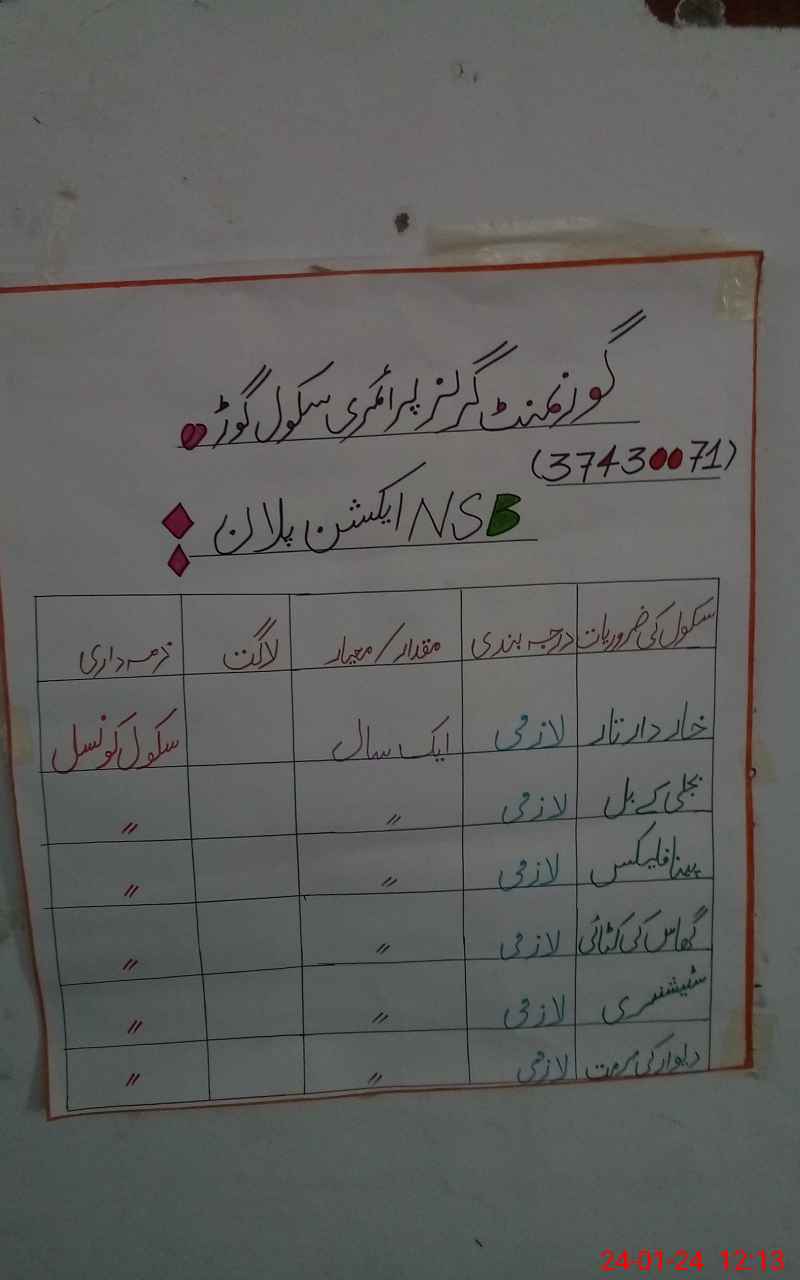 گورنمنٹ گرلز پرائمری سکول گوڑہ
(37430071)
NSB ایکشن پلان
سکول کی ضروریات درجہ بندی مقدار/معیار لاگت ذمہ داری
خاردار تار لازمی ایک سال سکول کونسل
بجلی کے بل لازمی〃 〃
پینافلیکس لازمی 〃 〃
گھاس کی کٹائی لازمی 〃 〃
سٹیشنری لازمی 〃 〃
دیوار کی مرمت لازمی 〃 〃
24-01-24 12:13